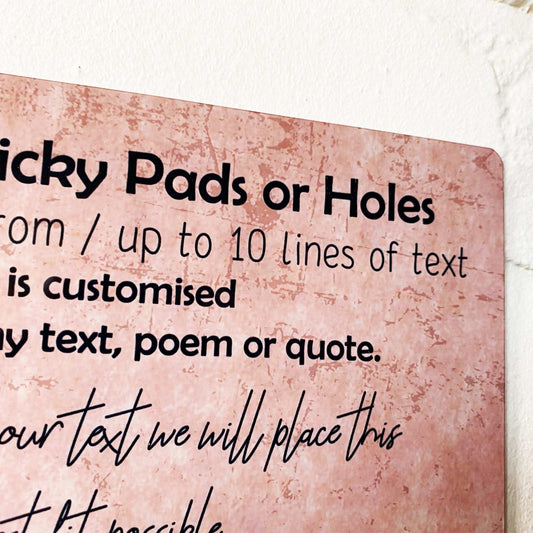 icky Pads or Holes
rom / up to 10 lines of text
is customised
ny text, poem or quote.
our text we will place this
t fit possible